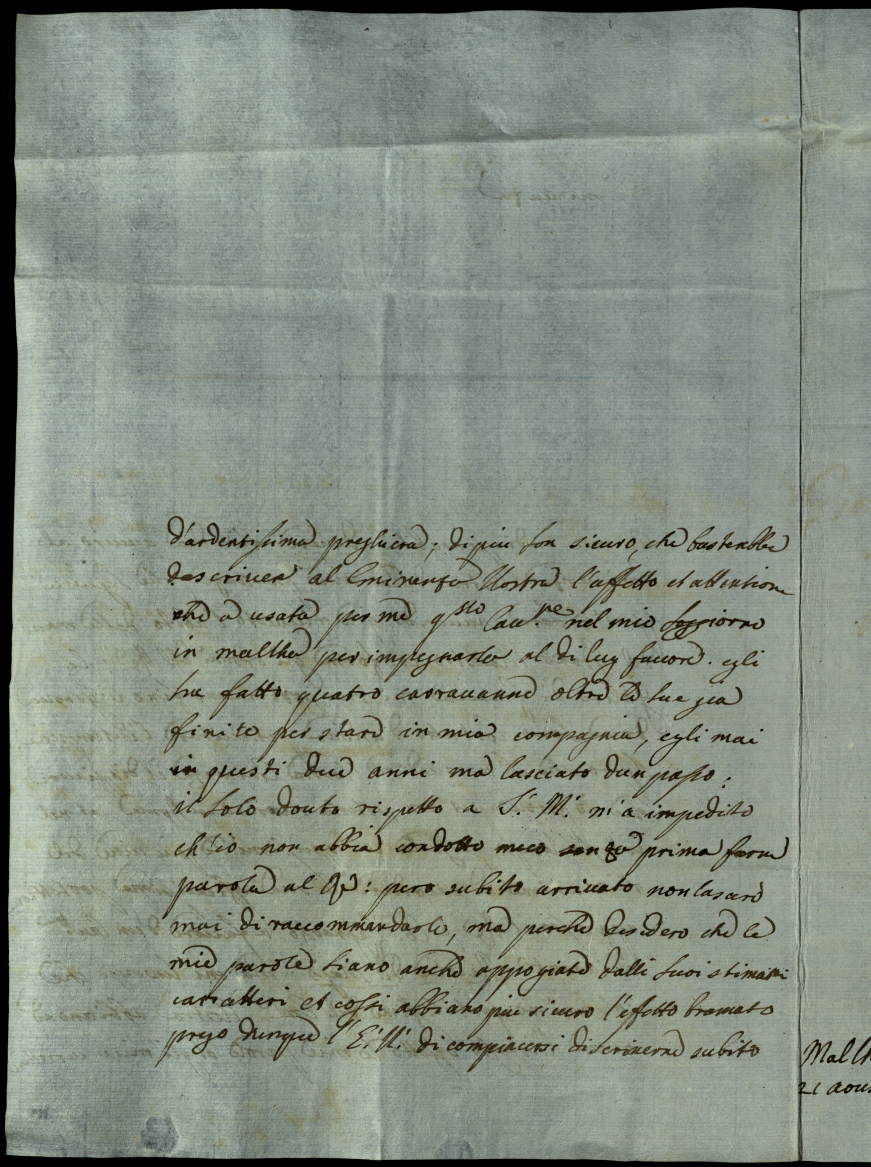 d'ardentissima preghiera; di piu son sicuro, che basterebbe
descrivere al Eminenza Vostra l'affetto et attentione
che a usata per me q.sto Cau.re nel mio soggiorno
in maltha per impegnarla al di luy favore. egli
ha fatto quatro caravanne oltre le sue gia
finite per stare in mia compagnia, egli mai
in questi due anni ma lasciato d'un passo:
il solo douto rispetto a S. M. m'a impedito
ch'io non abbia condotto meco senza prima farne
parola al Rè: pero subito arrivato non lasarò
mai di raccommandarlo, ma perche desidero che le
mie parole siano anche appogiate dalli suoi stimatti
caratteri et cossi abbiano piu sicuro l'effetto bramato
prego dunque l'E. V. di compiacersi di scriverne subito
Malth
21 aous